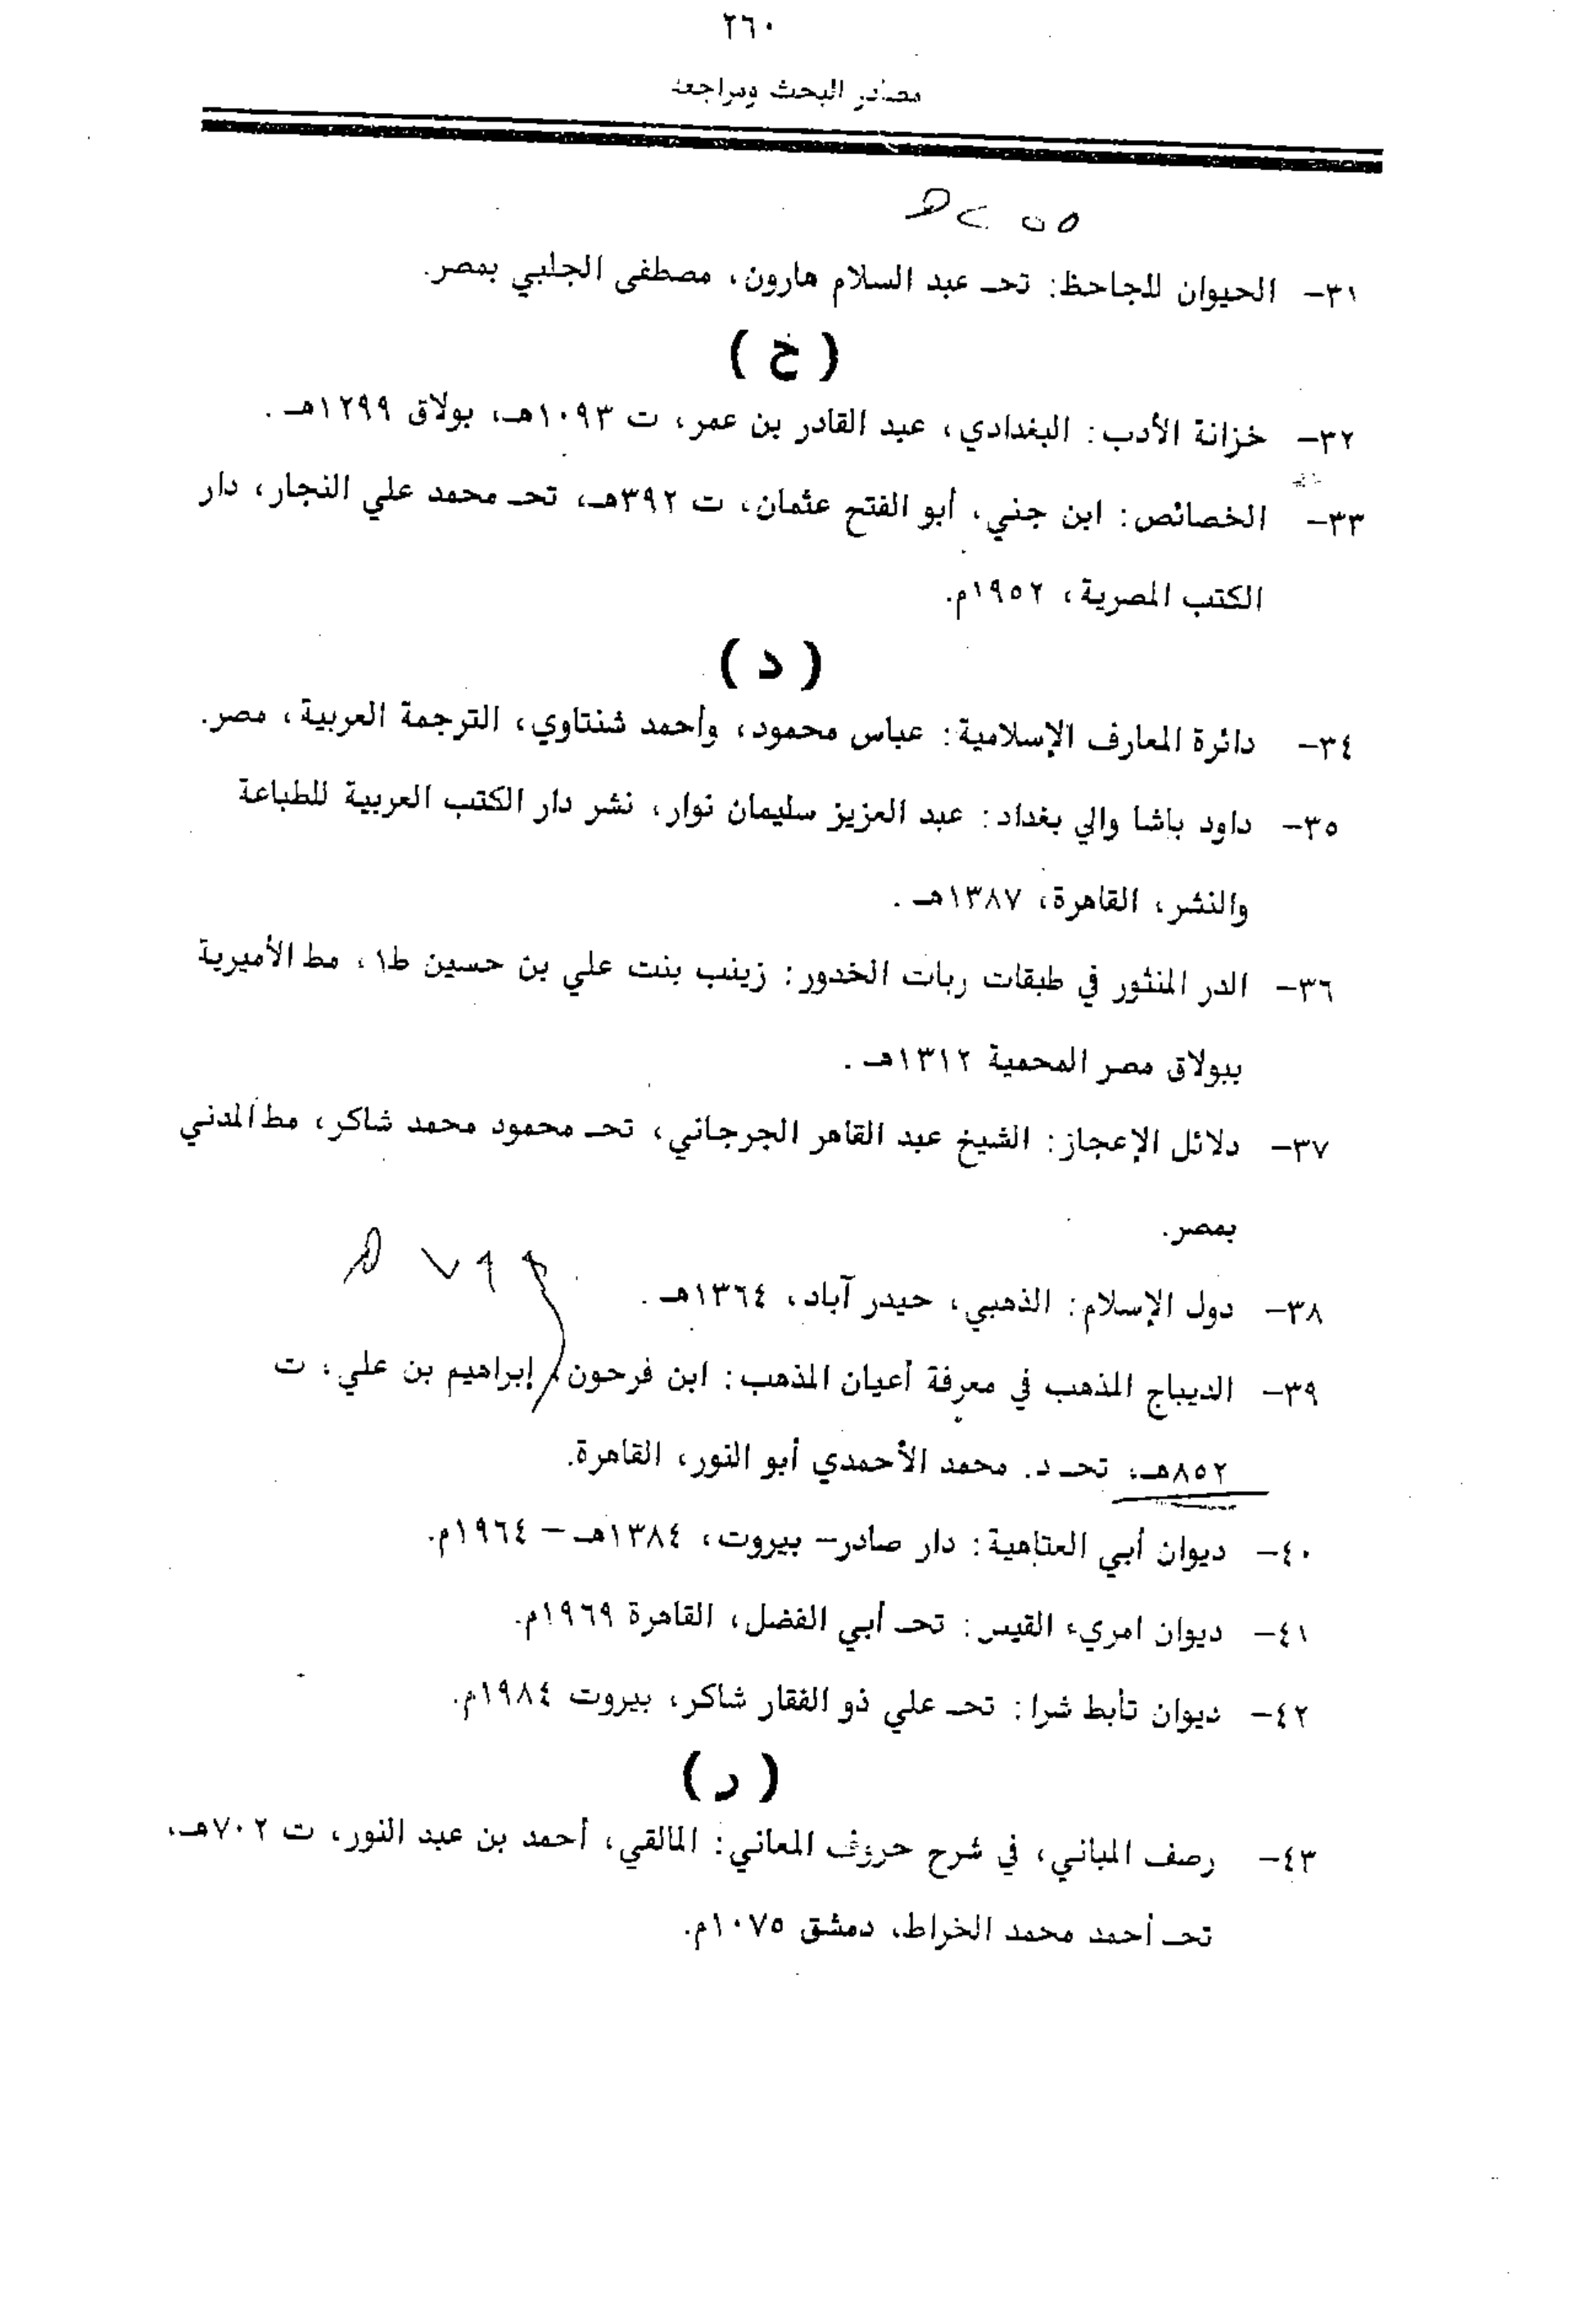 ٢٦٠
مصادر البحث ومراجعه
٢٥٥هـ
٣١- الحيوان للجاحظ: تحـ عبد السلام هارون، مصطفى الجلبي بمصر.
( خ )
٣٢- خزانة الأدب: البغدادي، عبد القادر بن عمر، ت ١٠٩٣هـ، بولاق ١٢٩٩هـ.
٣٣- الخصائص: ابن جني، أبو الفتح عثمان، ت ٣٩٢هـ، تحـ محمد علي النجار، دار
الكتب المصرية، ١٩٥٢م.
( د )
٣٤- دائرة المعارف الإسلامية: عباس محمود، وأحمد شنتاوي، الترجمة العربية، مصر.
٣٥- داود باشا والي بغداد: عبد العزيز سليمان نوار، نشر دار الكتب العربية للطباعة
والنشر، القاهرة، ١٣٨٧هـ.
٣٦- الدر المنثور في طبقات ربات الخدور: زينب بنت علي بن حسين ط١، مط الأميرية
ببولاق مصر المحمية ١٣١٢هـ.
٣٧- دلائل الإعجاز: الشيخ عبد القاهر الجرجاني، تحـ محمود محمد شاكر، مط المدني
بمصر.
٧٩٩هـ
٣٨- دول الإسلام: الذهبي، حيدر آباد، ١٣٦٤هـ.
٣٩- الديباج المذهب في معرفة أعيان المذهب: ابن فرحون، إبراهيم بن علي، ت
٨٥٢هـ، تحـ د. محمد الأحمدي أبو النور، القاهرة.
٤٠- ديوان أبي العتاهية: دار صادر- بيروت، ١٣٨٤هـ - ١٩٦٤م.
٤١- ديوان امريء القيس: تحـ أبي الفضل، القاهرة ١٩٦٩م.
٤٢- ديوان تأبط شرا: تحـ علي ذو الفقار شاكر، بيروت ١٩٨٤م.
( ر )
٤٣- رصف المباني، في شرح حروف المعاني: المالقي، أحمد بن عبد النور، ت ٧٠٢هـ،
تحـ أحمد محمد الخراط، دمشق ١٠٧٥م.